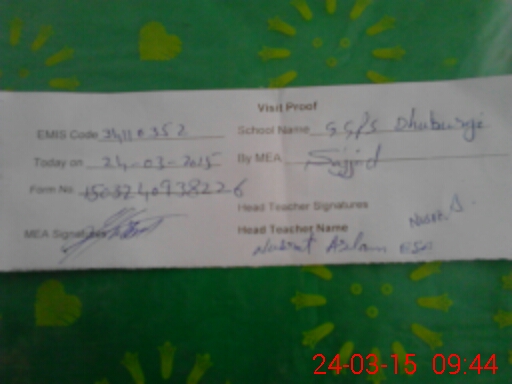 Visit Proof
EMIS Code 34110352 School Name G.G.P.S Dhuburji
Today on 24-03-2015 By MEA Sajjid
Form No. 150324093822 6
Head Teacher Signatures
MEA Signatures Head Teacher Name
Nusrat Aslam
24-03-15 09:44